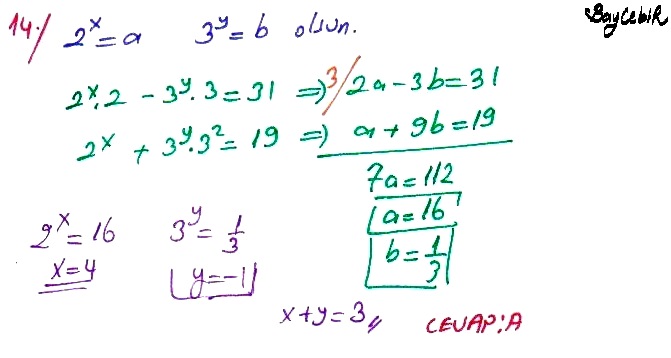 BayCebiR
14·/ 2^x = a 3^y = b olsun.
2^x . 2 - 3^y . 3 = 31 ⇒ 3/ 2a - 3b = 31
2^x + 3^y . 3^2 = 19 ⇒ a + 9b = 19
7a = 112
a = 16
b = 1/3
2^x = 16 3^y = 1/3
x = 4 y = -1
x + y = 3,,
CEVAP: A